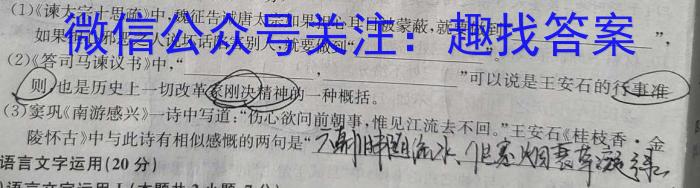 (1)《谏太宗十思疏》中,魏征告诫唐太宗如果担心耳目被蒙蔽,就要做到" ",
如果担心邪恶之人说坏话陷害别人,就要做到"
微信公众号关注:趣找答案
(2)《答司马谏议书》中," , "可以说是王安石的行事准
则,也是历史上一切改革家刚决精神的一种概括。
(3)窦巩《南游感兴》一诗中写道:"伤心欲问前朝事,惟见江流去不回。"王安石《桂枝香·金
陵怀古》中与此诗有相似感慨的两句是"六朝旧事随流水、但寒烟衰草凝绿
语言文字运用(20分)